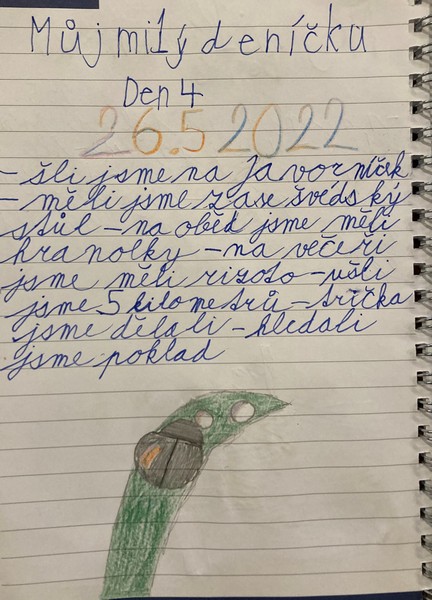 Můj milý deníčku
Den 4
26.5 2022
- šli jsme na Javorníček
- měli jsme zase švédský
stůl - na oběd jsme měli
hranolky - na večeři
jsme měli rizoto - ušli
jsme 5 kilometrů - trička
jsme dělali - hledali
jsme poklad